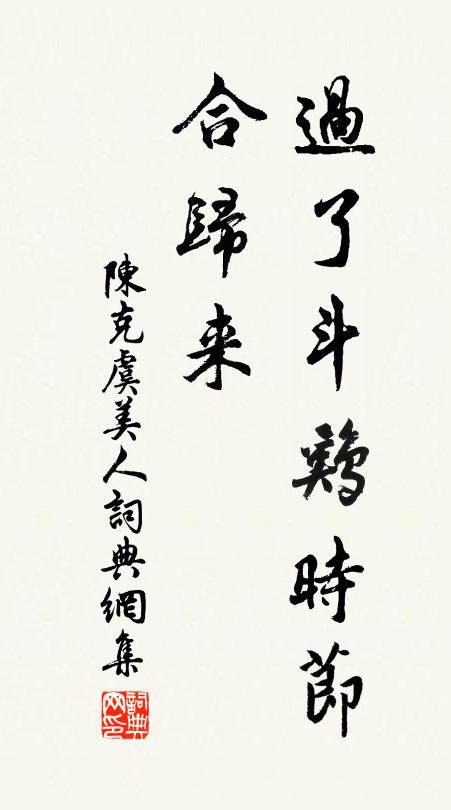 過了斗鷄時節
合歸来
陳克虞美人詞典網集
詞典网印